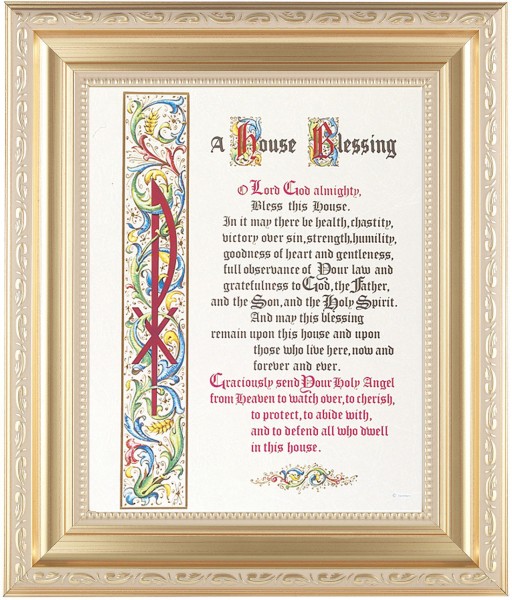 A House Blessing
O Lord God almighty,
Bless this House.
In it may there be health, chastity,
victory over sin, strength, humility,
goodness of heart and gentleness,
full observance of Your law and
gratefulness to God, the Father,
and the Son, and the Holy Spirit.
And may this blessing
remain upon this house and upon
those who live here, now and
forever and ever.
Graciously send Your Holy Angel
from Heaven to watch over, to cherish,
to protect, to abide with,
and to defend all who dwell
in this house.